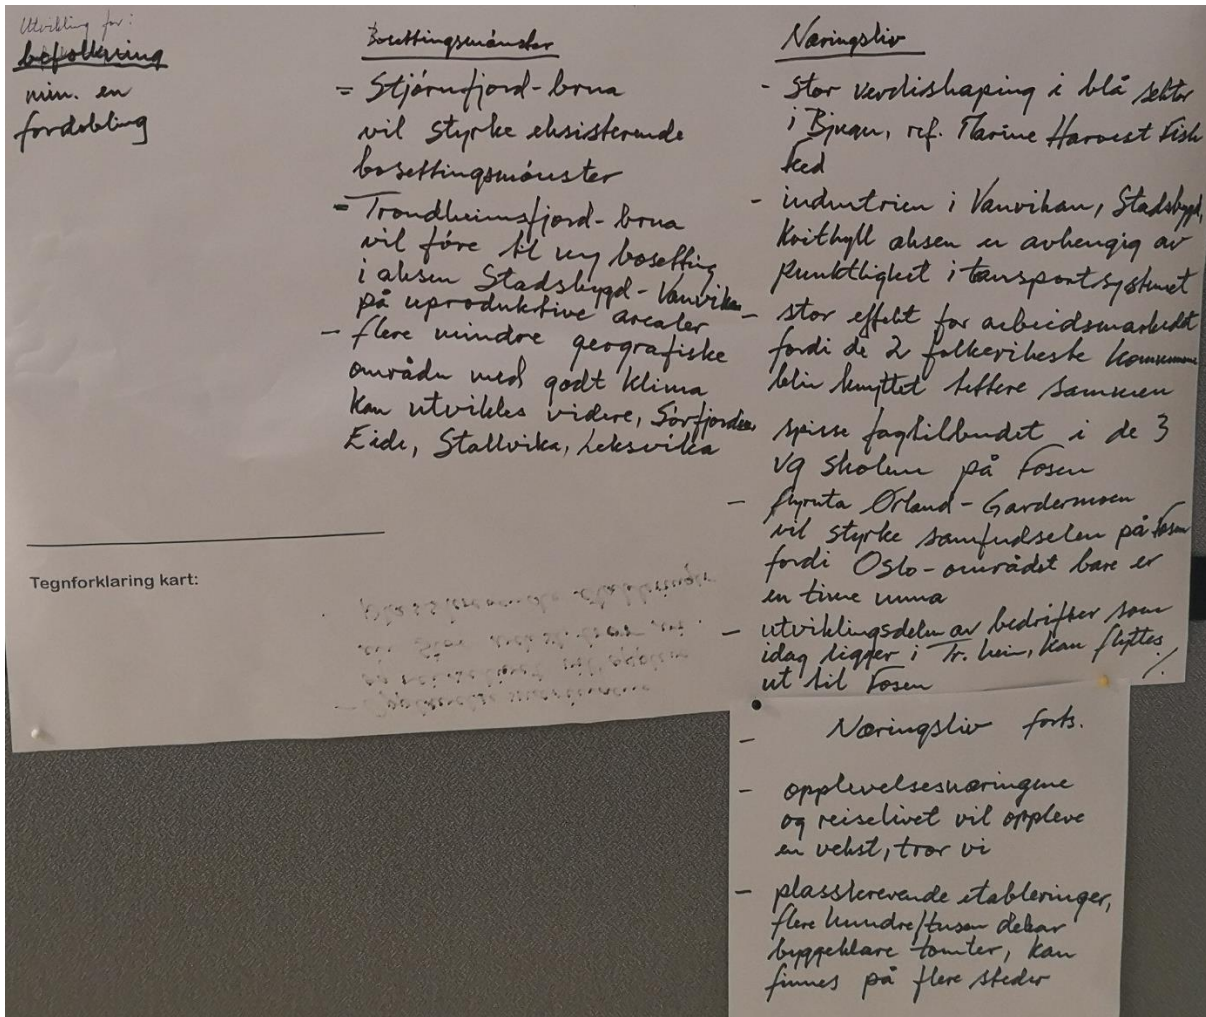 Utvikling for:
befolkning
min. en
fordobling
Bosettingsmónster
= Stjórnfjord-brua
vil styrke eksisterende
bosettingsmónster
= Trondheimsfjord-brua
vil fóre til ny bosetting
i aksen Stadsbygd-Vanvikan
på uproduktive arealer
- flere mindre geografiske
områder med godt klima
kan utvikles videre, Sórfjorden,
Eide, Stallvika, Leksvika
Tegnforklaring kart:
Næringsliv
- Stor verdiskaping i blå sektor
i Bjugn, ref. Marine Harvest Fish
Feed
- industrien i Vanvikan, Stadsbygd,
Kvithyll aksen er avhengig av
punktlighet i transportsystemet
- stor effekt for arbeidsmarkedet
fordi de 2 folkerikeste kommunene
blir knyttet tettere sammen
spisse fagtilbudet i de 3
vg skolene på Fosen
- flyruta Ørland-Gardermoen
vil styrke samfundsdelen på Fosen
fordi Oslo-området bare er
en time unna
- utviklingsdelen av bedrifter som
idag ligger i Tr.heim, kan flyttes
ut til Fosen ./.
- Næringsliv forts.
- opplevelsesnæringene
og reiselivet vil oppleve
en vekst, tror vi
- plasskrevende etableringer,
flere hundre/tusen dekar
byggeklare tomter, kan
finnes på flere steder